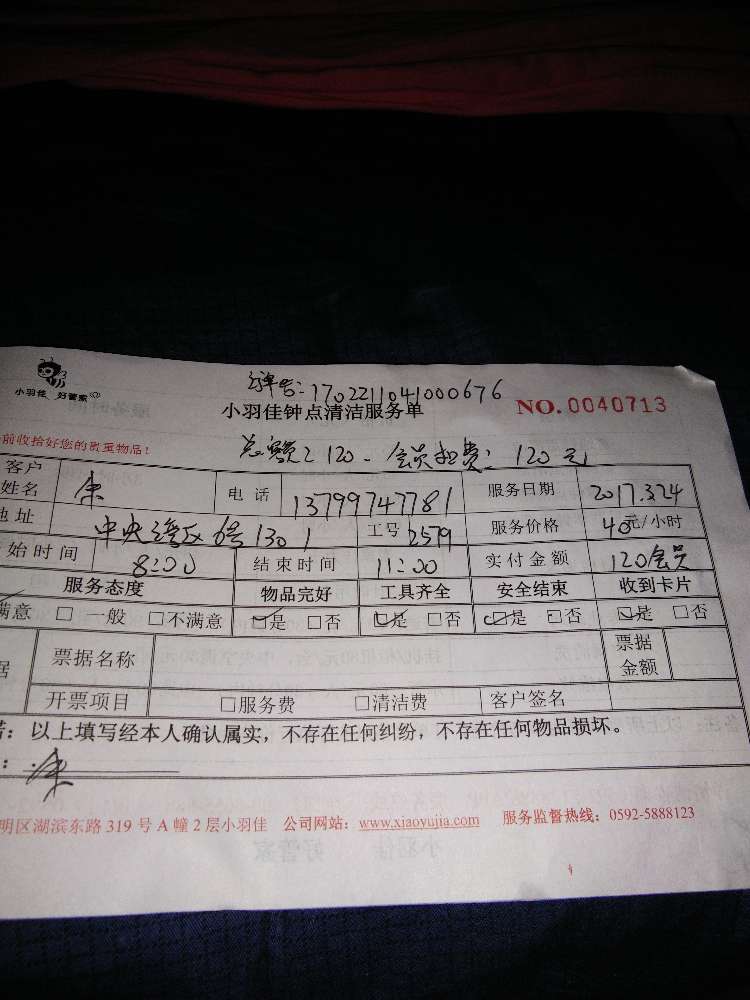 小羽佳 好管家
单号:1702211041000676
小羽佳钟点清洁服务单 NO. 0040713
前收拾好您的贵重物品!
总额:120. 会员扣费:120元
客户姓名 电话 13799747781 服务日期 2017.3.24
地址 中央湾区 1301 工号 2579 服务价格 40元/小时
始时间 8:00 结束时间 11:00 实付金额 120会员
服务态度 物品完好 工具齐全 安全结束 收到卡片
满意 □一般 □不满意 ☑是 □否 ☑是 □否 ☑是 □否 ☑是 □否
据 票据名称 票据金额
开票项目 □服务费 □清洁费 客户签名
:以上填写经本人确认属实,不存在任何纠纷,不存在任何物品损坏。
明区湖滨东路 319 号 A 幢 2 层小羽佳 公司网站:www.xiaoyujia.com 服务监督热线:0592-5888123